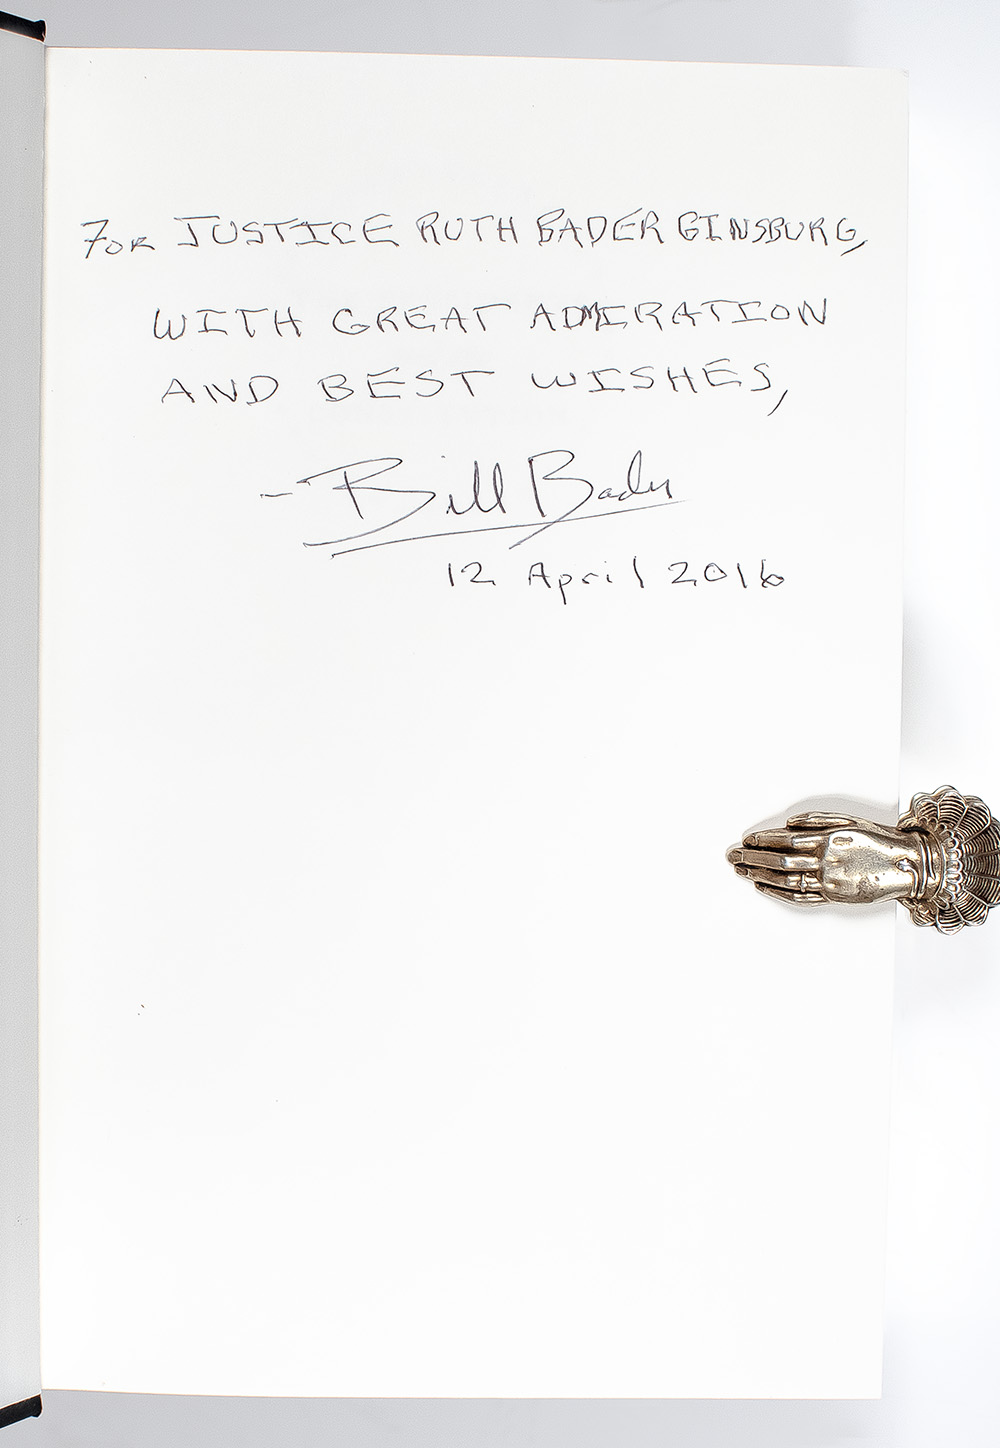 For JUSTICE RUTH BADER GINSBURG,
WITH GREAT ADMIRATION
AND BEST WISHES,
- Bill Bader
12 April 2016